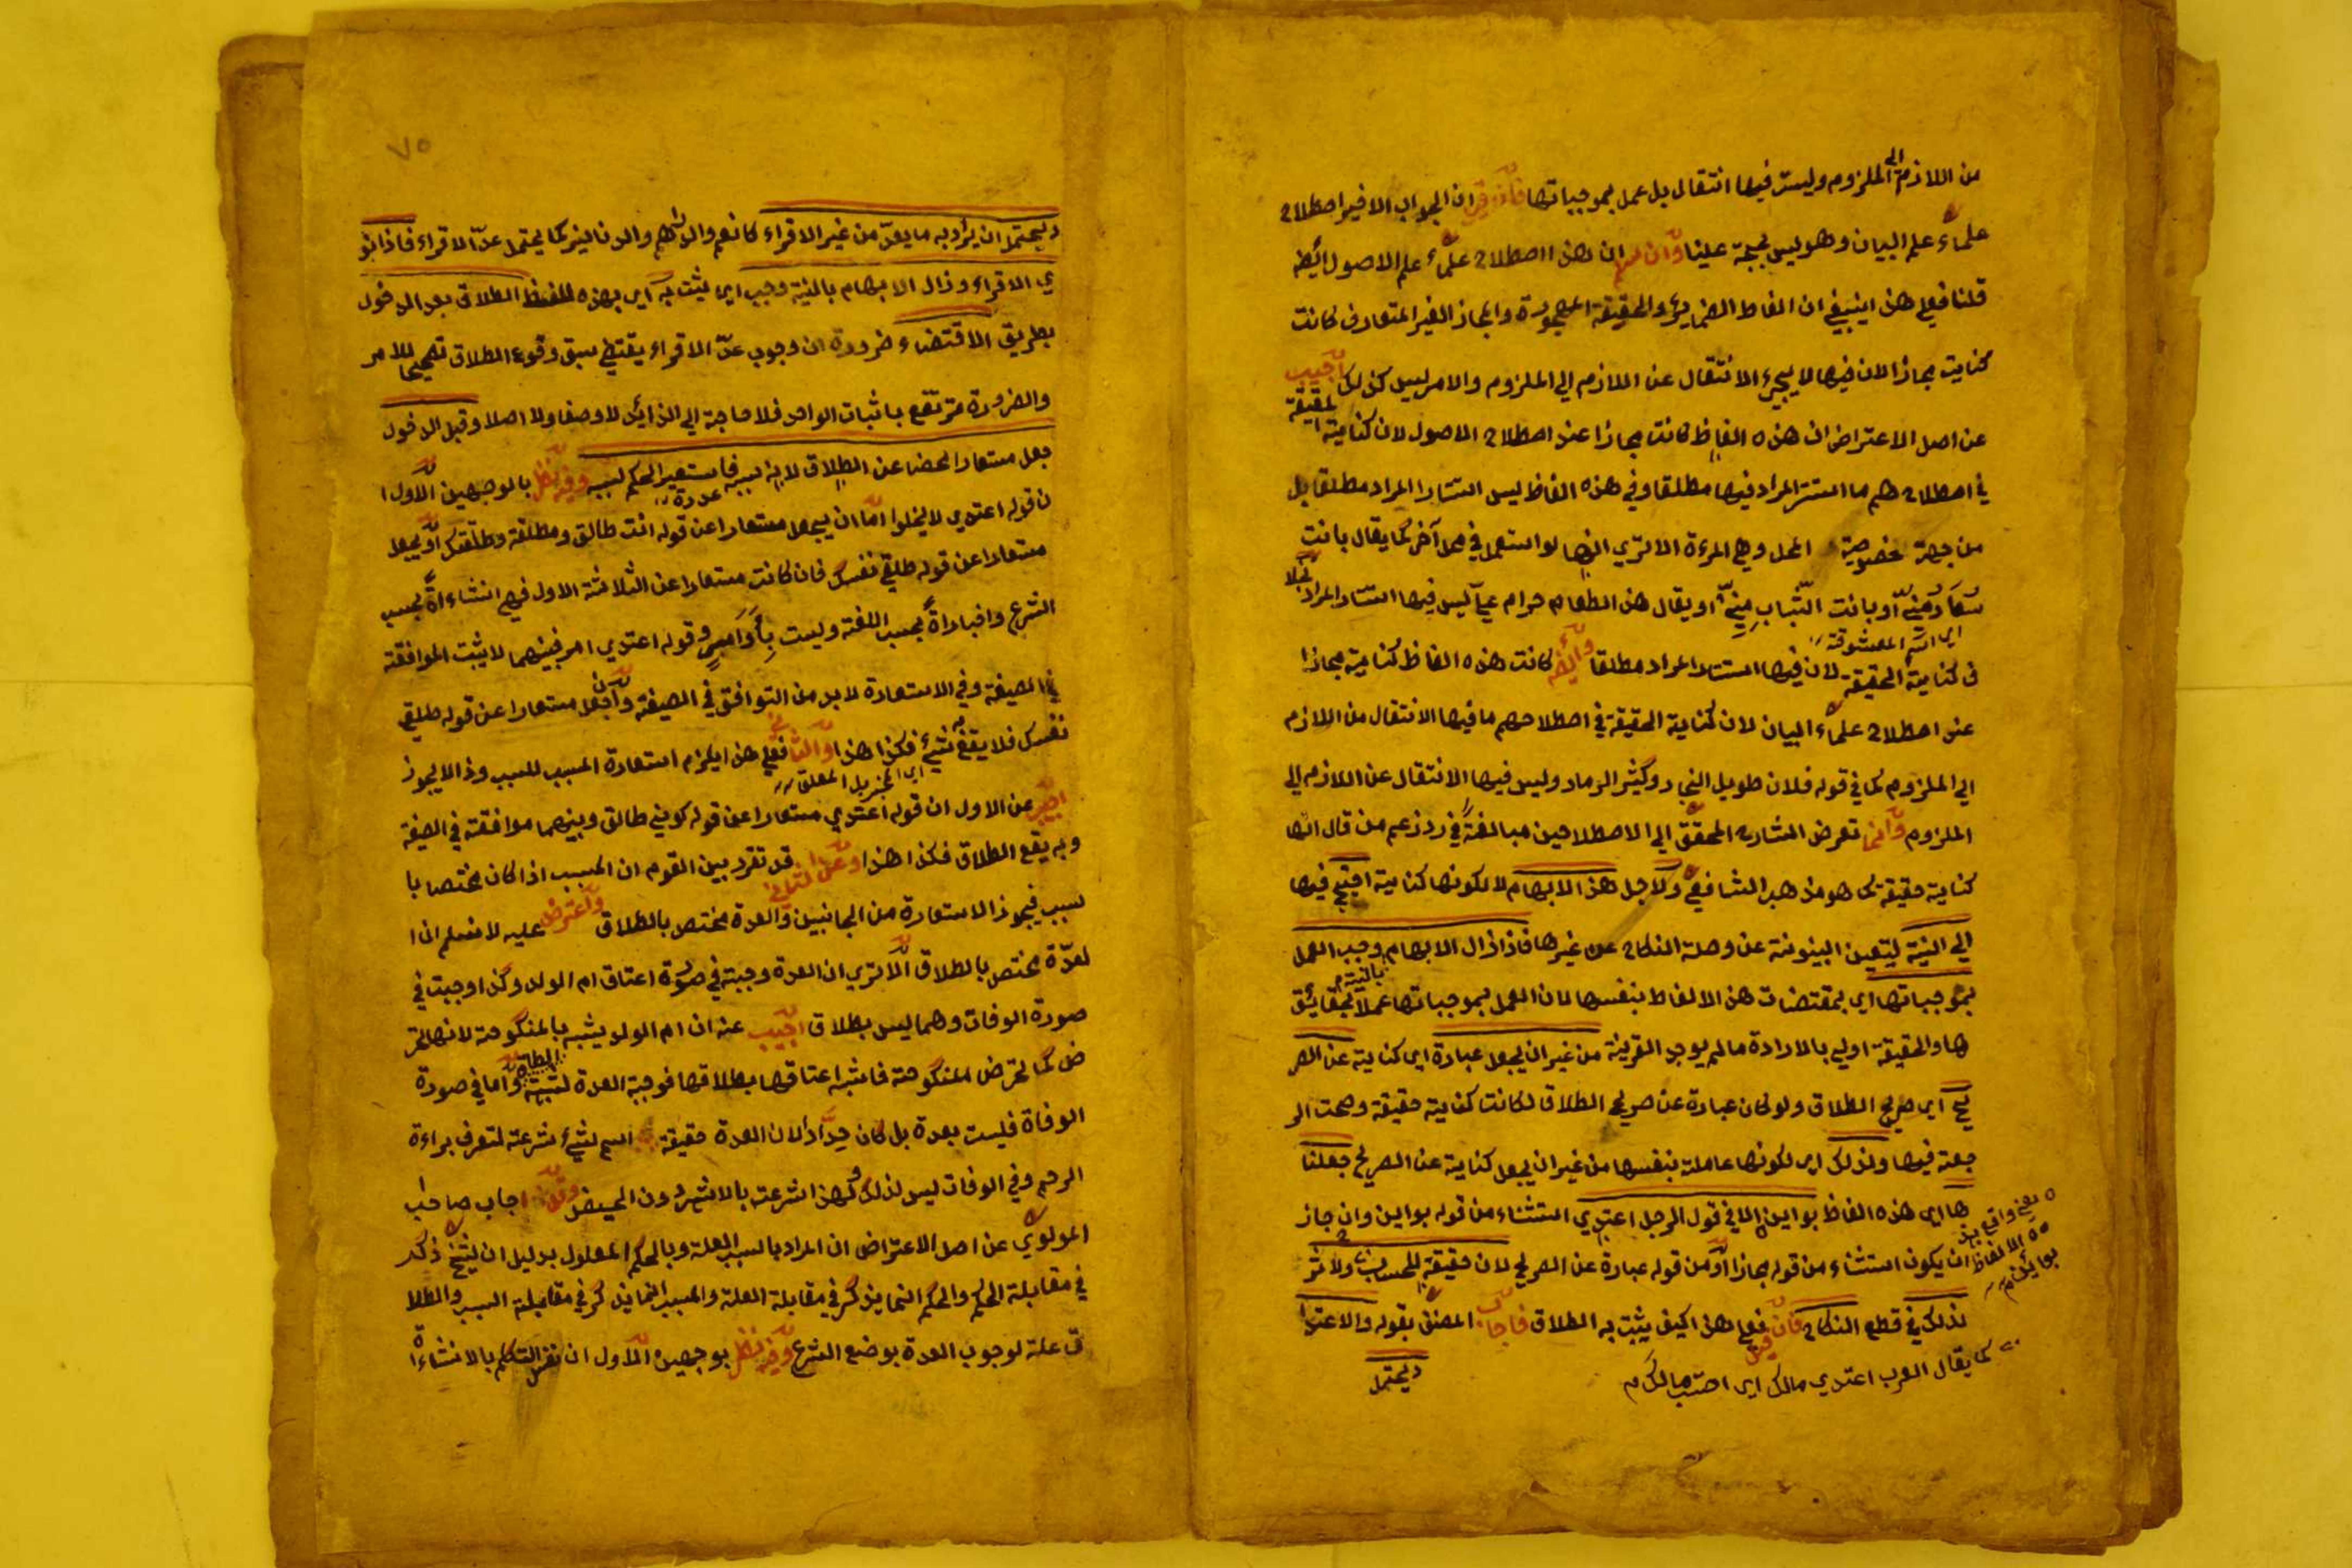 من اللازم الى الملزوم وليست فيها انتقال بل عمل بموجباتها فان قيل ان الجواب الاخير اصطلاح
علماء علم البيان وهو ليس بحجة علينا وان سلم ان هذا اصطلاح علماء علم الاصول ايضا
قلنا فعلى هذا ينبغي ان الفاظ الضماير والحقيقة المهجورة والمجاز الغير المتعارف كانت
كنايت مجازا لان فيها لا يجيء الانتقال عن اللازم الى الملزوم والامر ليس كذلك اجيب
عن اصل الاعتراض ان هذه الفاظ كانت مجازا عند اصطلاح الاصول لان كناية الحقيقة
في اصطلاحهم ما استتر المراد فيها مطلقا وفي هذه الفاظ ليس استتار المراد مطلقا بل
من جهة خصوصية المحل وهي المرءة الا ترى انها لو استعمل في محل آخر كما يقال بانت
سعاد منه او بانت الشباب منه او يقال هذا الطعام حرام علي ليس فيها استتار المراد بخلا
اي اسم المعشوقة
ف كناية الحقيقة لان فيها استتار المراد مطلقا وايضا كانت هذه الفاظ كناية مجازا
عند اصطلاح علماء البيان لان كناية الحقيقة في اصطلاحهم ما فيها الانتقال من اللازم
الى الملزوم كما في قوله فلان طويل النجاد وكثير الرماد وليس فيها الانتقال عن اللازم الى
الملزوم وانما تعرض الشارح المحقق الى الاصطلاحين مبالغة في رد زعم من قال انها
كناية حقيقة كما هو مذهب الشافعي ولاجل هذا الابهام لا لكونها كناية احتيج فيها
الى النية ليتعين البينونة عن وصلة النكاح عن غيرها فاذا زال الابهام بالنية وجب العمل
بموجباتها اي بمقتضات هذا الالفاظ بنفسها لان العمل بموجباتها عملا بحقائق
ها والحقيقة اولى بالارادة ما لم يوجد القرينة من غير ان يجعل عبارة اي كناية عن الصر
يح اي صريح الطلاق ولو كان عبارة عن صريح الطلاق لكانت كناية حقيقة وصحت الر
جعة فيها ولذلك اي لكونها عاملة بنفسها من غير ان يجعل كناية عن الصريح جعلنا
ها اي هذه الفاظ بواين الا في قول الرجل اعتدي استثناء من قوله بواين وان جاز
ان يكون استثناء من قوله مجازا او من قوله عبارة عن الصريح لان حقيقة للحساب ولا اثر
لذلك في قطع النكاح فان قيل فعلى هذا كيف يثبت به الطلاق فاجاب المصنف بقوله والاعتدا
كما يقال العرب اعتدي مالك اي احتسب مالك
ديحتمل
٧٥
ديحتمل ان يراد به ما يعد من غير الاقراء كالنعم والدراهم والدنانير كما يحتمل عد الاقراء فاذا نو
ي الاقراء وزال الابهام بالنية وجب اي يثبت به اي بهذه اللفظ الطلاق بعد الدخول
بطريق الاقتضاء ضرورة ان وجوب عد الاقراء يقتضي سبق وقوع الطلاق تصحيحا للامر
والضرورة ترتفع باثبات الواحد فلا حاجة الى الزائد لا وصفا ولا اصلا وقبل الدخول
جعل مستعارا محضا عن الطلاق لانه سببه فاستعير الحكم لسببه وفيه نظر بالوجهين الاول ا
ن قوله اعتدي لا يخلوا اما ان يجعل مستعارا عن قوله انت طالق ومطلقة وطلقتك او يجعل
مستعارا عن قوله طلقي نفسك فان كانت مستعارا عن الثلاثة الاول فهي انشاءاة بحسب
الشرع واخباراة بحسب اللغة وليست باوامر وقوله اعتدي امر فبينهما لا يثبت الموافقة
في الصيغة وفي الاستعارة لا بد من التوافق في الصيغة وان جعل مستعارا عن قوله طلقي
نفسك فلا يقع به شيء فكذا هذا والثاني فعلى هذا يلزم استعارة المسبب للسبب وذا لا يجوز
اجيب عن الاول ان قوله اعتدي مستعارا عن قوله كوني طالق وبينهما موافقة في الصيغة
وبه يقع الطلاق فكذا هذا وعن الثاني قد تقرر بين القوم ان المسبب اذا كان مختصا با
لسبب فيجوز الاستعارة من الجانبين والعدة مختص بالطلاق واعترض عليه لا نسلم ان ا
لعدة مختص بالطلاق الا ترى ان العدة وجبة في صورة اعتاق ام الولد وكذا وجبت في
صورة الوفات وهما ليس بطلاق اجيب عنه ان ام الولد يشبه بالمنكوحة لانها تحر
ض كما تحرض المنكوحة فاشبه اعتاقها بطلاقها فوجبة العدة لشبهة الطلاق واما في صورة
الوفاة فليست بعدة بل كان حدادا لان العدة حقيقة اسم لشيء شرعة لتعرف براءة
الرحم وفي الوفات ليس لذلك ولهذا شرعت بالاشهر دون الحيض وقد اجاب صاحب
المولوي عن اصل الاعتراض ان المراد بالسبب العلة وبالحكم المعلول بدليل ان الشيخ ذكر
في مقابلة الحكم والحكم انما يذكر في مقابلة العلة والمسبب انما يذكر في مقابلة السبب والطلا
ق علة لوجوب العدة بوضع الشرع وفيه نظر بوجهين الاول ان نفس التكلم بالانشاءاة